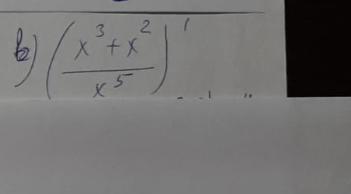 b) (x³+x² / x⁵)'